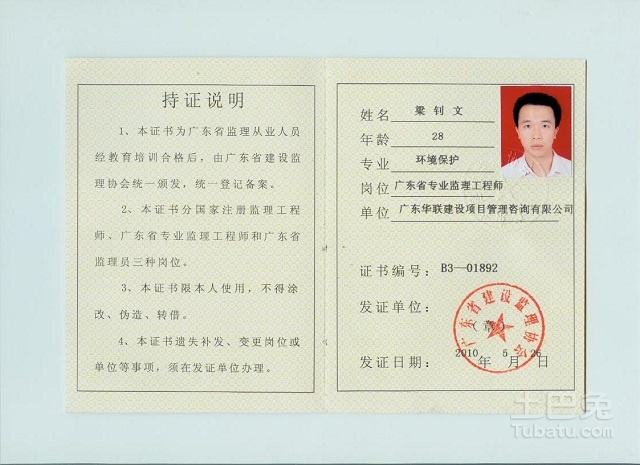 持证说明
1、本证书为广东省监理从业人员
经教育培训合格后，由广东省建设监
理协会统一颁发，统一登记备案。
2、本证书分国家注册监理工程
师、广东省专业监理工程师和广东省
监理员三种岗位。
3、本证书限本人使用，不得涂
改、伪造、转借。
4、本证书遗失补发、变更岗位或
单位等事项，须在发证单位办理。
姓名 梁钊文
年龄 28
专业 环境保护
岗位 广东省专业监理工程师
单位 广东华联建设项目管理咨询有限公司
证书编号：B3—01892
发证单位：
广东省建设监理协会
（章）
发证日期：2010 年 5 月 26 日
土巴兔
Tubatu.com